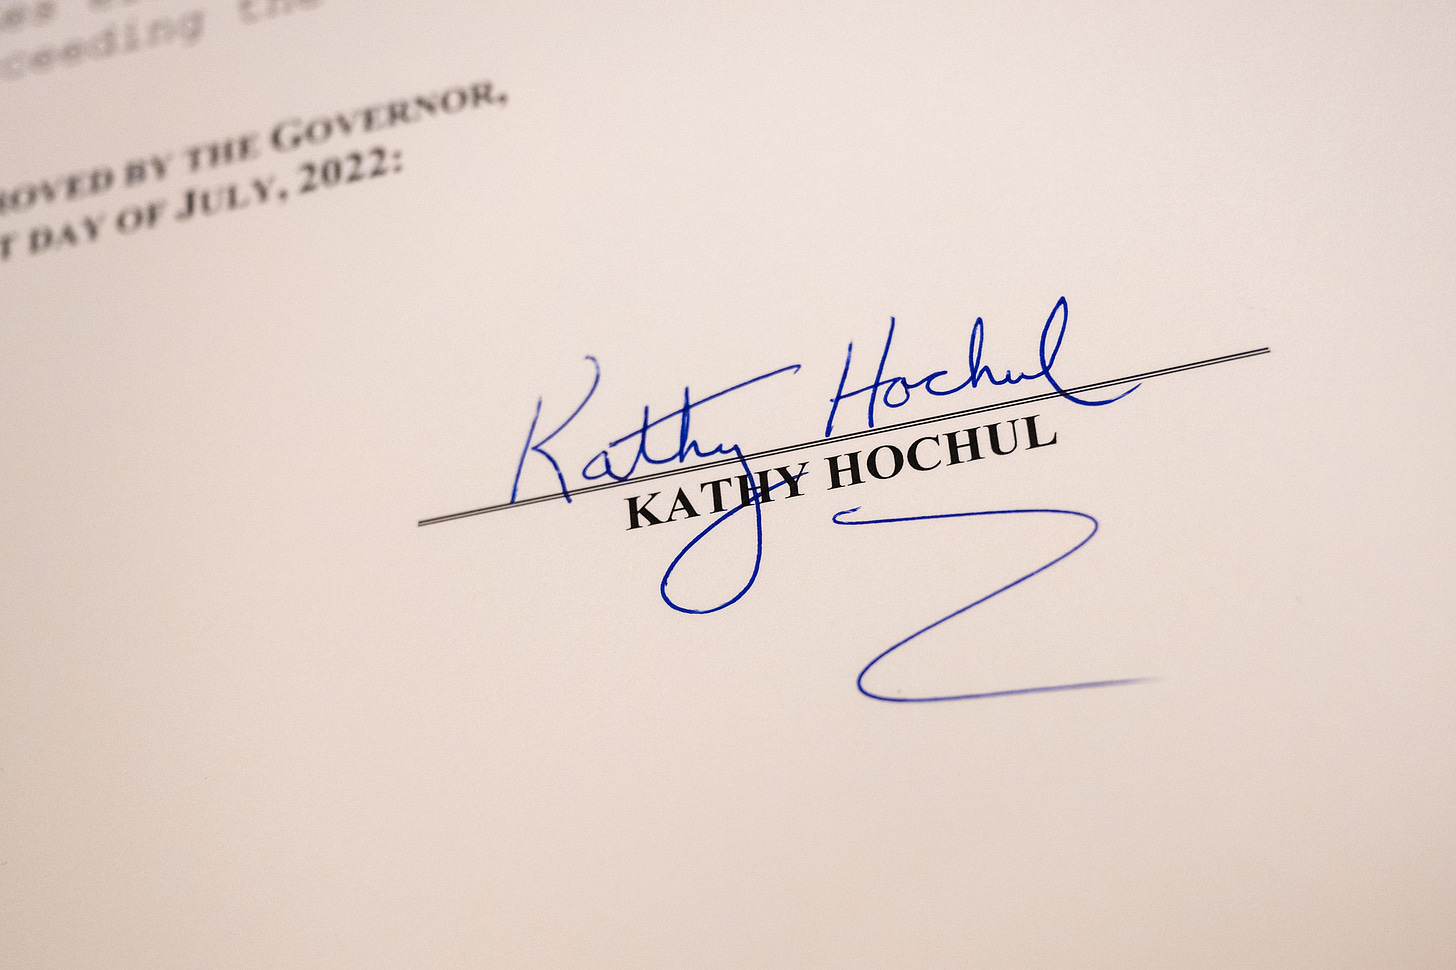 ceeding the
ROVED BY THE GOVERNOR,
T DAY OF JULY, 2022:
Kathy Hochul
KATHY HOCHUL